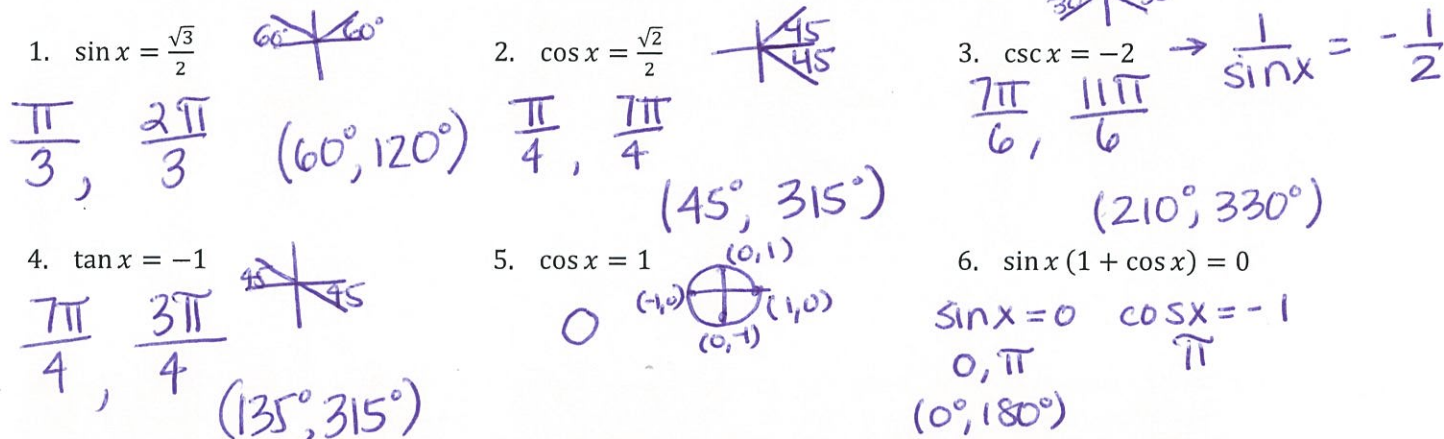 1. sin x = √3/2 60° 60°
π/3, 2π/3 (60°, 120°)
2. cos x = √2/2 45 45
π/4, 7π/4
(45°, 315°)
3. csc x = −2 → 1/sinx = -1/2
7π/6, 11π/6
(210°, 330°)
4. tan x = −1 45 45
7π/4, 3π/4
(135°, 315°)
5. cos x = 1 (0,1)
0 (-1,0) (1,0)
(0,-1)
6. sin x (1 + cos x) = 0
sinx = 0 cosx = -1
0, π π
(0°, 180°)